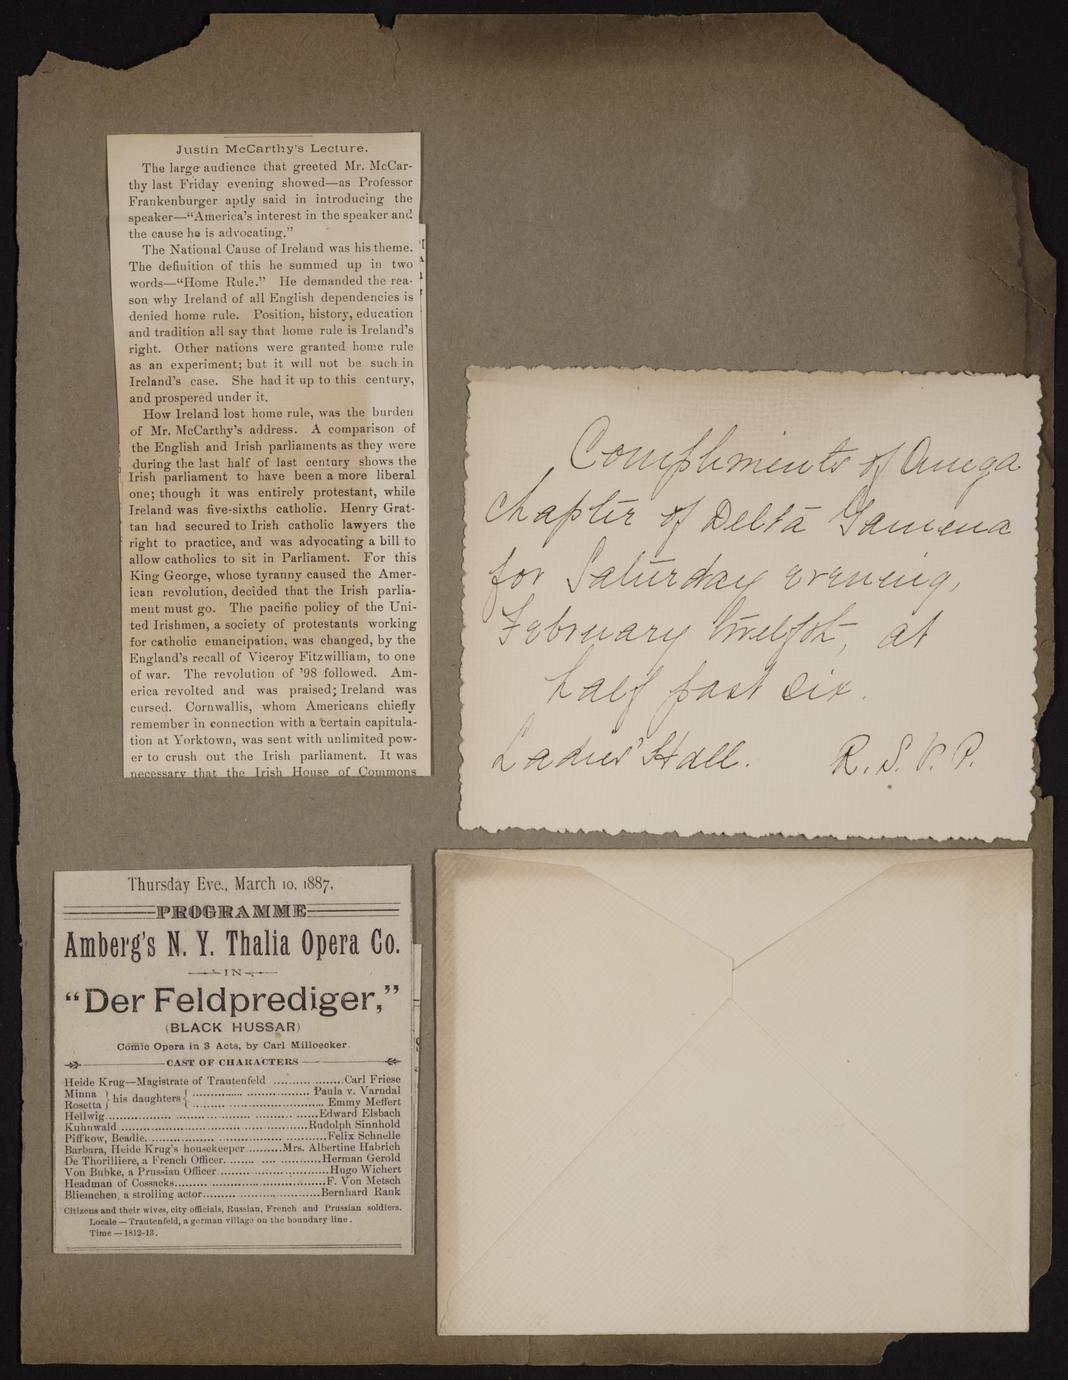 Justin McCarthy's Lecture.
The large audience that greeted Mr. McCar-
thy last Friday evening showed—as Professor
Frankenburger aptly said in introducing the
speaker—“America's interest in the speaker and
the cause he is advocating.”
The National Cause of Ireland was his theme.
The definition of this he summed up in two
words—“Home Rule.” He demanded the rea-
son why Ireland of all English dependencies is
denied home rule. Position, history, education
and tradition all say that home rule is Ireland's
right. Other nations were granted home rule
as an experiment; but it will not be such in
Ireland's case. She had it up to this century,
and prospered under it.
How Ireland lost home rule, was the burden
of Mr. McCarthy's address. A comparison of
the English and Irish parliaments as they were
during the last half of last century shows the
Irish parliament to have been a more liberal
one; though it was entirely protestant, while
Ireland was five-sixths catholic. Henry Grat-
tan had secured to Irish catholic lawyers the
right to practice, and was advocating a bill to
allow catholics to sit in Parliament. For this
King George, whose tyranny caused the Amer-
ican revolution, decided that the Irish parlia-
ment must go. The pacific policy of the Uni-
ted Irishmen, a society of protestants working
for catholic emancipation, was changed, by the
England's recall of Viceroy Fitzwilliam, to one
of war. The revolution of '98 followed. Am-
erica revolted and was praised; Ireland was
cursed. Cornwallis, whom Americans chiefly
remember in connection with a certain capitula-
tion at Yorktown, was sent with unlimited pow-
er to crush out the Irish parliament. It was
necessary that the Irish House of Commons
Compliments of Omega
Chapter of Delta Gamma
for Saturday evening,
February twelfth, at
half past six.
Ladies' Hall. R. S. V. P.
Thursday Eve., March 10, 1887,
PROGRAMME
Amberg's N. Y. Thalia Opera Co.
IN
“Der Feldprediger,”
(BLACK HUSSAR)
Comic Opera in 3 Acts, by Carl Milloecker.
CAST OF CHARACTERS
Heide Krug—Magistrate of Trautenfeld ................Carl Friese
Minna } his daughters { ................ Paula v. Varndal
Rosetta ................ Emmy Meffert
Hellwig................Edward Elsbach
Kuhnwald ................Rudolph Sinnhold
Piffkow, Beadle................Felix Schnelle
Barbara, Heide Krug's housekeeper..........Mrs. Albertine Habrich
De Thorilliere, a French Officer................Herman Gerold
Von Bubke, a Prussian Officer................Hugo Wichert
Headman of Cossacks................F. Von Metsch
Bliemchen, a strolling actor................Bernhard Rank
Citizens and their wives, city officials, Russian, French and Prussian soldiers.
Locale — Trautenfeld, a german village on the boundary line.
Time — 1812-13.